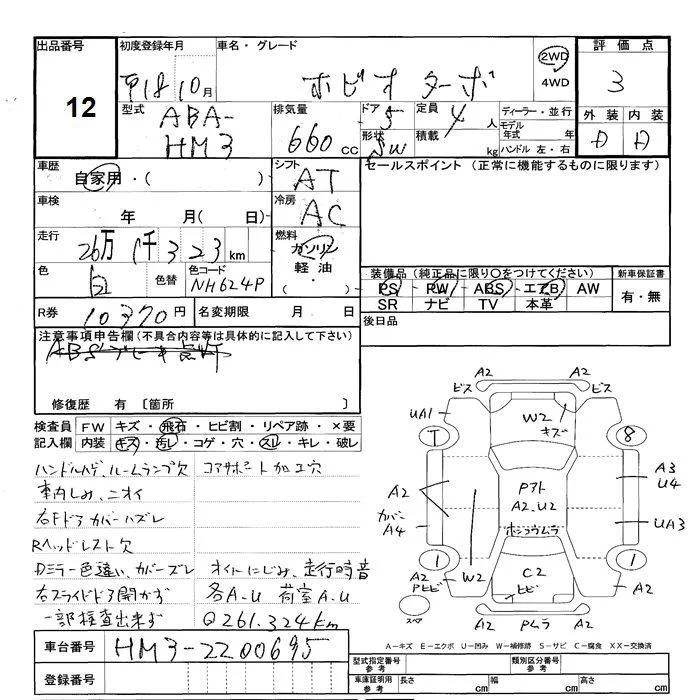 出品番号 初度登録年月 車名・グレード 評価点
12 平18 10月 ホビオ ターボ 2WD 4WD 3
型式 排気量 ドア 定員 ディーラー・並行 外装 内装
ABA- 5 4人 モデル年式 年 D D
HM3 660cc 形状 SW 積載 kg ハンドル 左・右
車歴 シフト セールスポイント (正常に機能するものに限ります)
自家用・( ) AT
車検 冷房
年 月( 日) AC
走行 燃料
26万1千323km ガソリン
色 色替 色コード 軽油 装備品(純正品に限り○をつけてください) 新車保証書
白 NH624P ・ PS PW ABS エアB AW 有・無
SR ナビ TV 本革
R券 10370円 名変期限 月 日 後日品
注意事項申告欄(不具合内容等は具体的に記入して下さい)
ABSブレーキ
修復歴 有 〔箇所 〕
検査員 FW キズ・飛石・ヒビ割・リペア跡・×要
記入欄 内装 キズ・汚レ・コゲ・穴・スレ・キレ・破レ
ハンドルハゲ、ルームランプ欠 コアサポート加工穴
車内しみ、ニオイ
右Fドアカバーハズレ
Rヘッドレスト欠
Dミラー色違い、カバーズレ オイルにじみ、走行時音
右スライドドア開かず 各A.U 荷室A.U
一部検査出来ず Q261.324km
A2 A2
ビス ビス
UA1 W2 キズ
T 8
A3
U4
A2 PアトA2.U2
カバーA4 ボンコウムラ UA3
1 1
A2 Pヒビ W2 C2 ヒビ A2
スペア
A2 Pムラ A2
A-キズ E-エクボ U-凹み W-補修跡 S-サビ C-腐食 XX-交換済
車台番号 HM3-2200695
型式指定番号 参考 類別区分番号 参考
登録番号 車庫証明用 参考 長さ cm 幅 cm 高さ cm